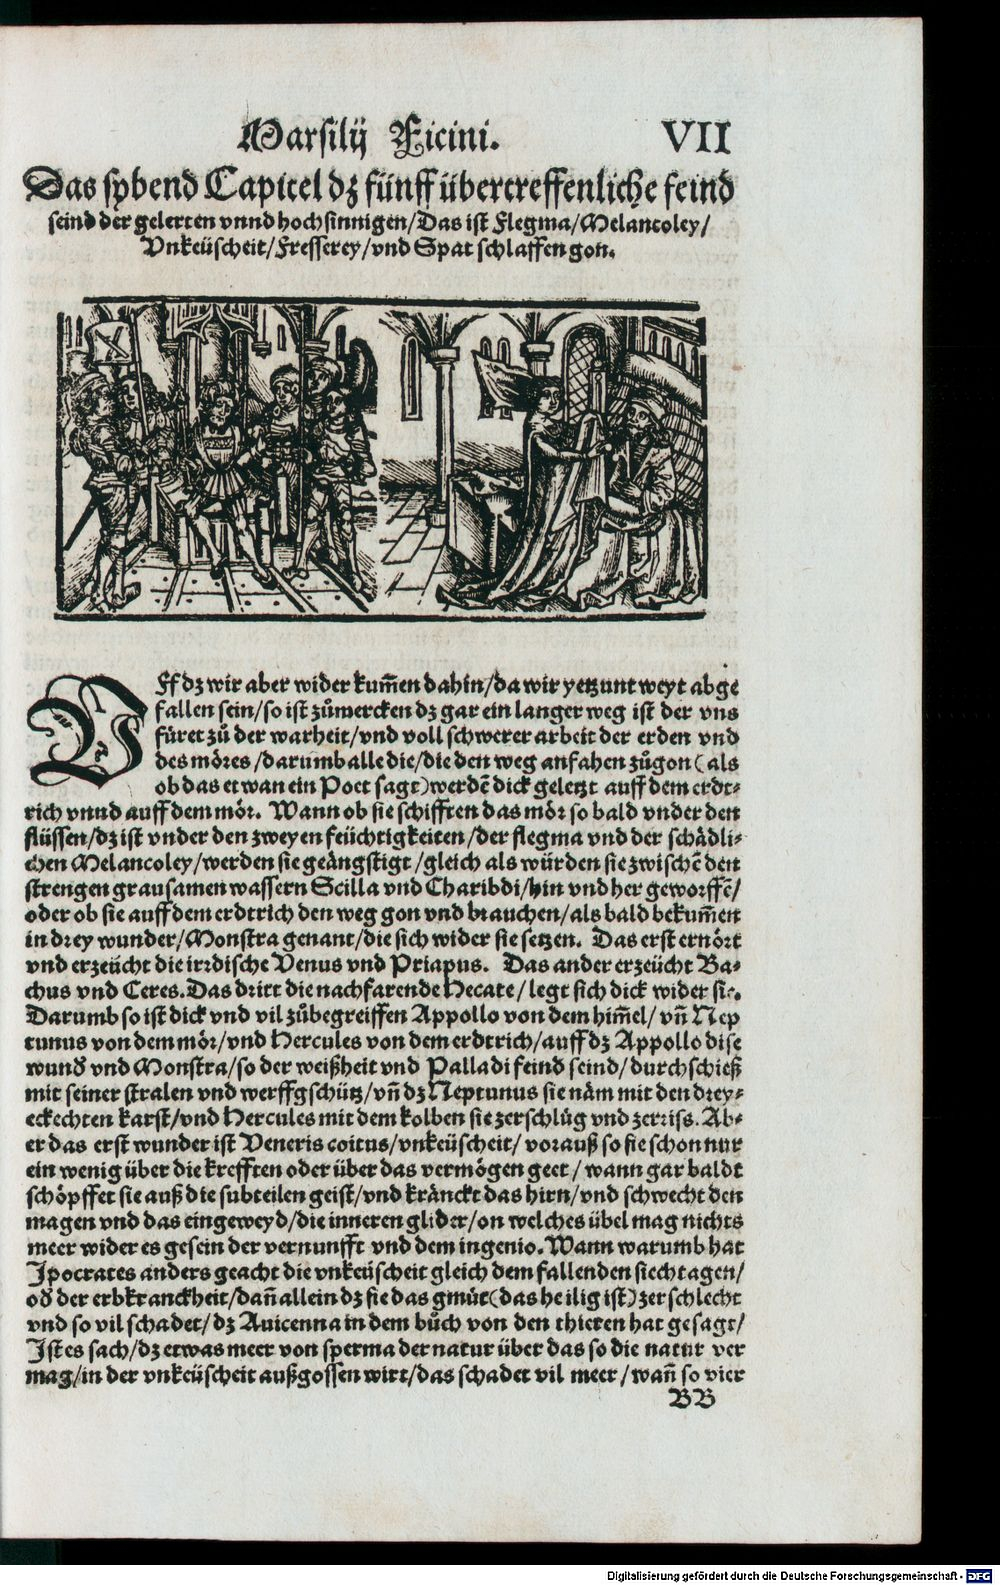 Marsilij Ficini. VII
Das sybend Capitel dz fünff übertreffenliche feind
seind der gelerten vnnd hochsinnigen/Das ist Flegma/Melancoley/
Vnkeüscheit/Fresserey/vnd Spat schlaffen gon.
VFf dz wir aber wider kum̃en dahin/da wir yetzunt weyt abge
fallen sein/so ist zůmercken dz gar ein langer weg ist der vns
füret zů der warheit/vnd voll schwerer arbeit der erden vnd
des möres/darumb alle die/die den weg anfahen zůgon (als
ob das etwan ein Poet sagt) werdẽ dick geletzt auff dem erdt-
rich vnnd auff dem mör. Wann ob sie schifften das mör so bald vnder den
flüssen/dz ist vnder den zweyen feüchtigkeiten/der flegma vnd der schädli-
chen Melancoley/werden sie geängstigt/gleich als würden sie zwischẽ den
strengen grausamen wassern Scilla vnd Charibdi/hin vnd her geworffẽ/
oder ob sie auff dem erdtrich den weg gon vnd brauchen/als bald bekum̃en
in drey wunder/Monstra genant/die sich wider sie setzen. Das erst ernört
vnd erzeücht die irrdische Venus vnd Priapus. Das ander erzeücht Ba-
chus vnd Ceres. Das dritt die nachfarende Hecate/legt sich dick wider sie.
Darumb so ist dick vnd vil zůbegreiffen Appollo von dem him̃el/vñ Nep
tunus von dem mör/vnd Hercules von dem erdtrich/auff dz Appollo dise
wund̉ vnd Monstra/so der weißheit vnd Palladi feind seind/durchschieß
mit seiner stralen vnd werffgschütz/vñ dz Neptunus sie näm mit den drey-
eckechten karst/vnd Hercules mit dem kolben sie zerschlüg vnd zerriss. Ab-
er das erst wunder ist Veneris coitus/vnkeüscheit/vorauß so sie schon nur
ein wenig über die krefften oder über das vermögen geet/wann gar baldt
schöpffet sie auß die subteilen geist/vnd kränckt das hirn/vnd schwecht den
magen vnd das eingeweyd/die inneren glider/on welches übel mag nichts
meer wider es gesein der vernunfft vnd dem ingenio. Wann warumb hat
Ipocrates anders geacht die vnkeüscheit gleich dem fallenden siechtagen/
od̉ der erbkranckheit/dañ allein dz sie das gmüt (das heilig ist) zerschlecht
vnd so vil schadet/dz Auicenna in dem bůch von den thieren hat gesagt/
Ist es sach/dz etwas meer von sperma der natur über das so die natur ver
mag/in der vnkeüscheit außgossen wirt/das schadet vil meer/wañ so vier
BB
Digitalisierung gefördert durch die Deutsche Forschungsgemeinschaft - DFG